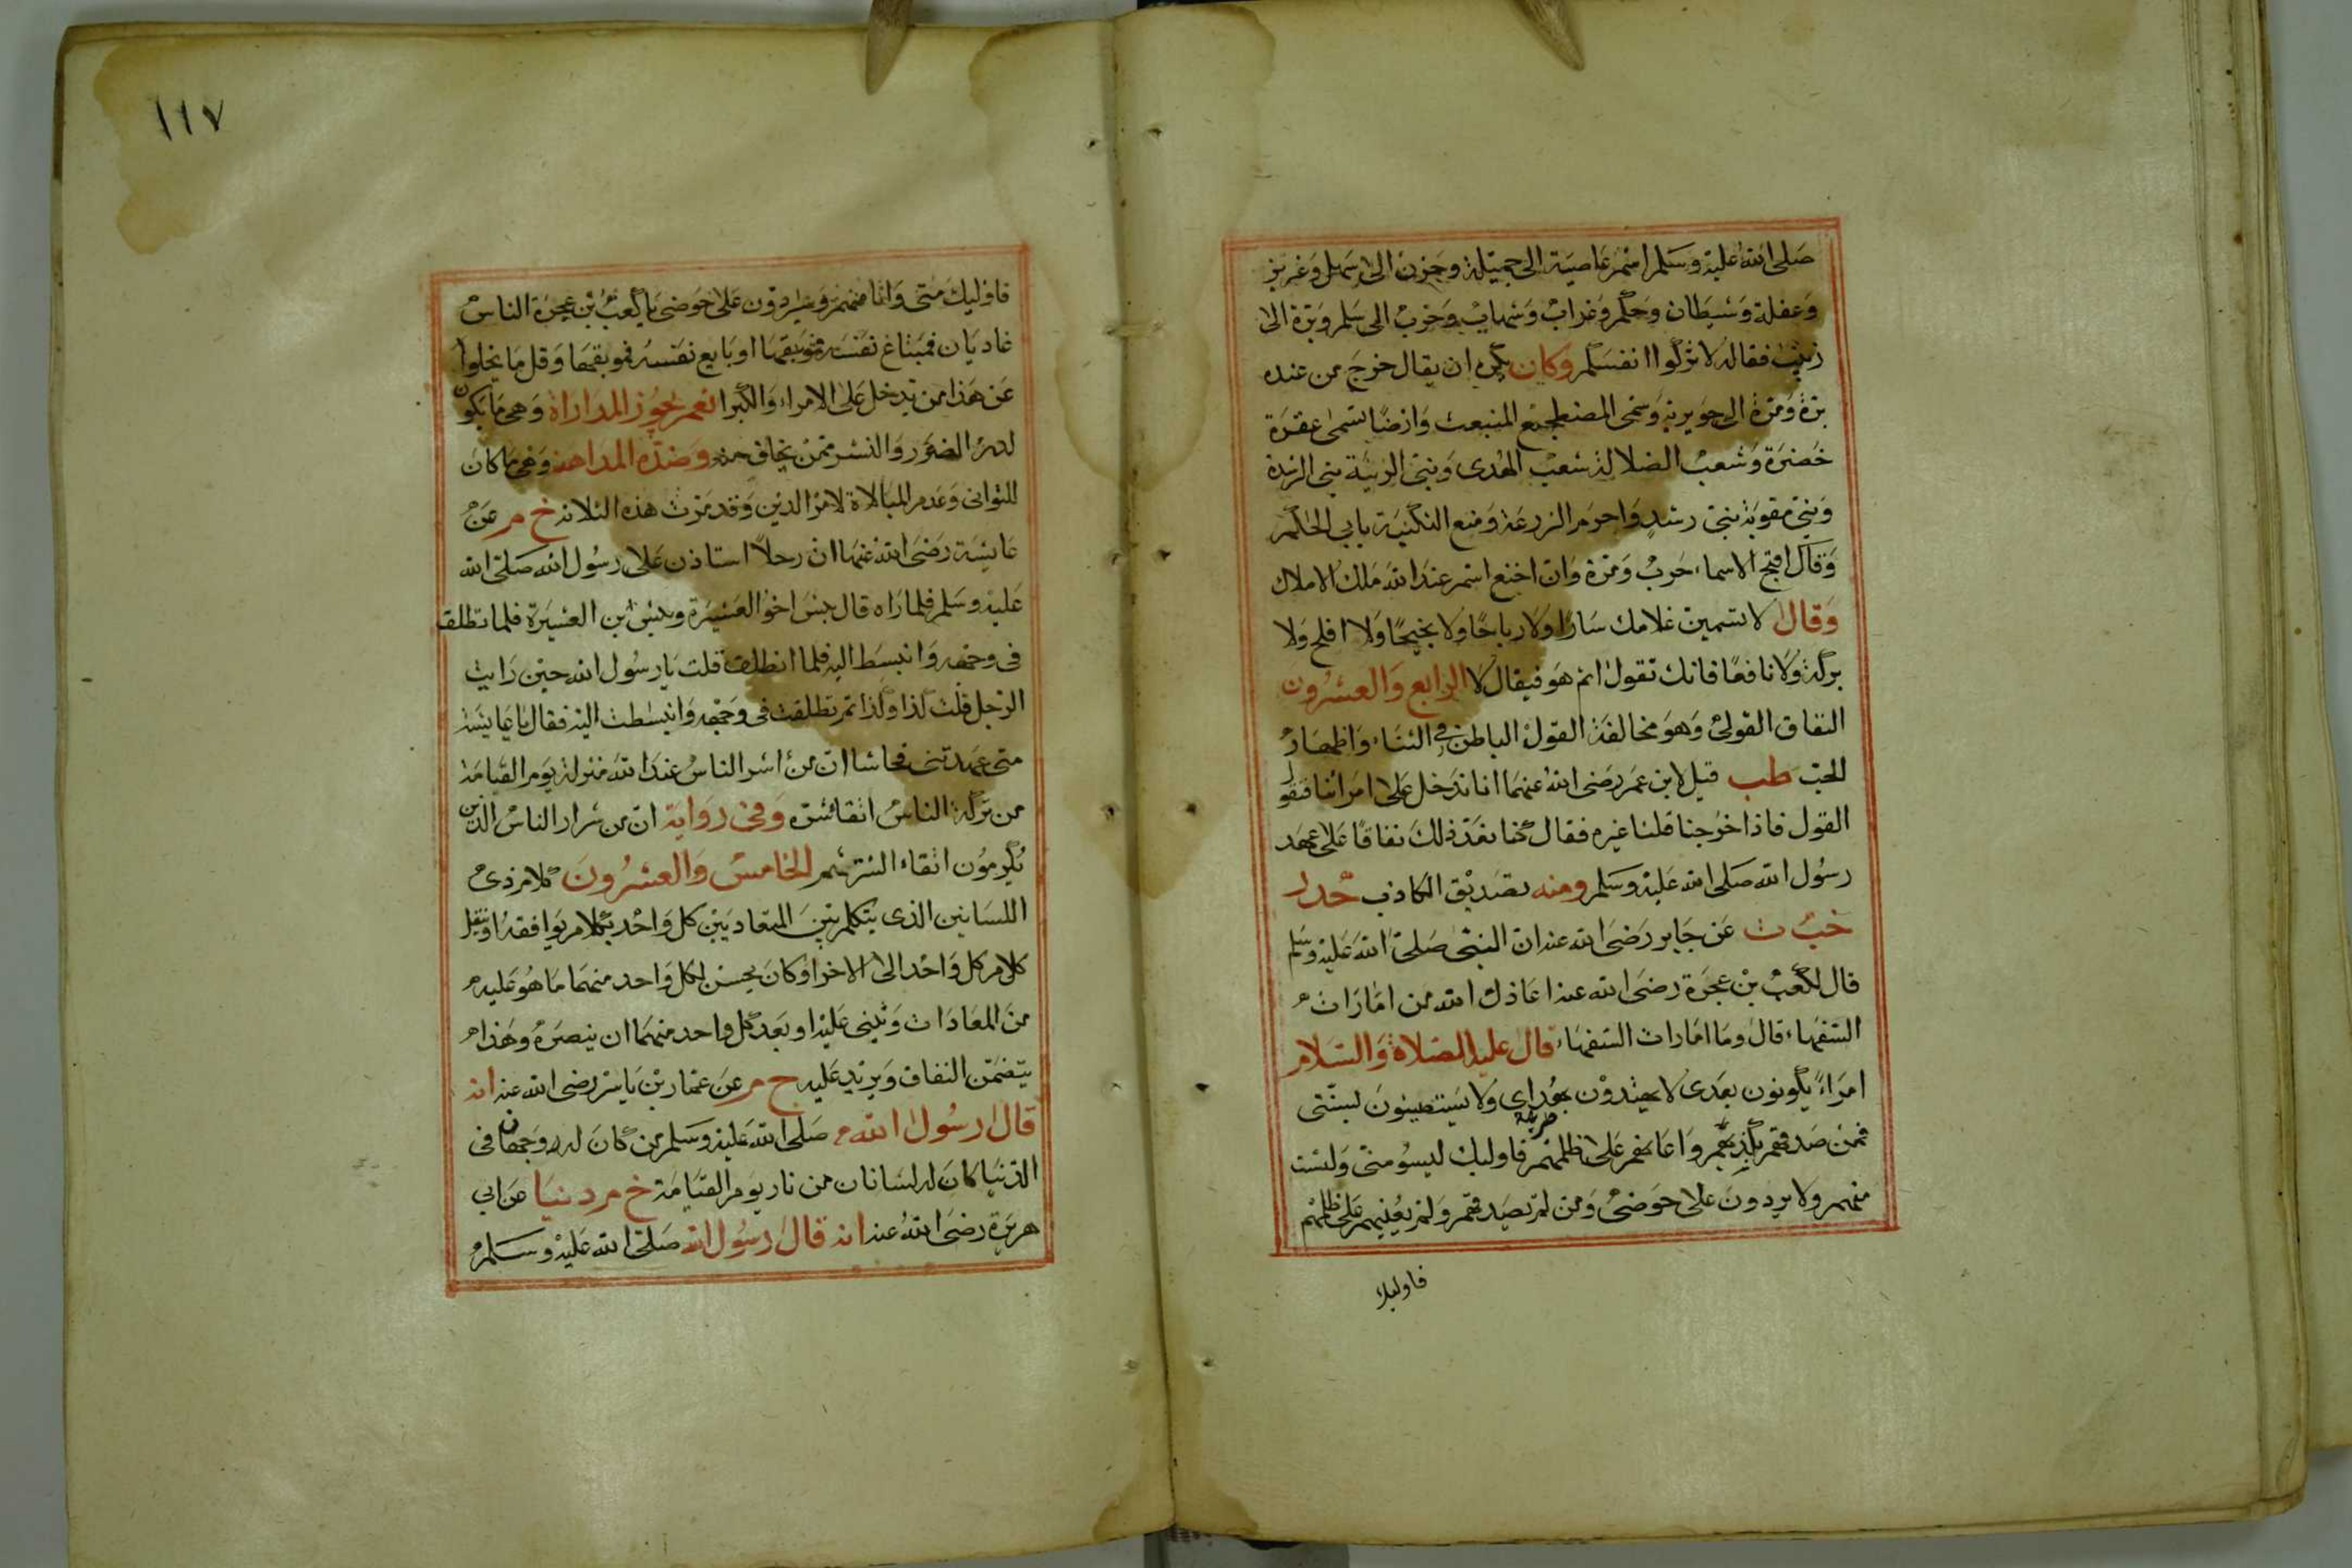 صلى الله عليه وسلم اسم عاصية الى جميلة وحزن الى سهل وعزيز
وعفلة وشيطان وحكم وغراب وشهاب وحرب الى سلم وبرة الى
زينب فقال لا تزكوا انفسكم وكان يكره ان يقال خرج من عند
برة ومرة الى جويرية وسمى المضطجع المنبعث وارضا تسمى عقرة
خضرة وشعب الضلالة شعب الهدى وبنى الزنية بنى الرشدة
وبنى مغوية بنى رشد واحرم الزرعة ومنع التكنية بابي الحكم
وقال اقبح الاسماء حرب ومرة وان اخنع اسم عند الله ملك الاملاك
وقال لا تسمين غلامك سارا ولا رباحا ولا نجيحا ولا افلح ولا
بركة ولا نافعا فانك تقول اثم هو فيقال لا الرابع والعشرون
النفاق القولى وهو مخالفة القول الباطن فى الثناء واظهار
الحب طب قيل لابن عمر رضى الله عنهما انا ندخل على امرائنا فنقول
القول فاذا خرجنا قلنا غيره فقال كنا نعد ذلك نفاقا على عهد
رسول الله صلى الله عليه وسلم ومنه تصديق الكاذب حد ر
خب ت عن جابر رضى الله عنه ان النبى صلى الله عليه وسلم
قال لكعب بن عجرة رضى الله عنه اعاذك الله من امارات
السفهاء قال وما امارات السفهاء قال عليه الصلاة والسلام
امراء يكونون بعدى لا يهتدون بهداى ولا يستنون لسنتى
فمن صدقهم بكذبهم واعانهم على ظلمهم فاوليك ليسو منى ولست
منهم ولا يردون على حوضى ومن لم يصدقهم ولم يعنيهم على ظلمهم
فاوليك
١١٧
فاوليك منى وانا منهم وسيردون على حوضى يا كعب بن عجرة الناس
غاديان فمبتاغ نفسه فموبقها او بايع نفسه فموبقها وقل ما يخلوا
عن هذا من يدخل على الامراء والكبرا نعم يجوز المداراة وهى ما يكون
لدرء الضرر والشر ممن يخاف منه وضده المداهنة وهى ما كان
للتوانى وعدم المبالاة لامر الدين وقد مرت هذه الثلاثة خ م عن
عايشة رضى الله عنها ان رجلا استاذن على رسول الله صلى الله
عليه وسلم فلما راه قال بئس اخو العشيرة وبئس ابن العشيرة فلما تطلق
فى وجهه وانبسط اليه فلما انطلق قلت يا رسول الله حين رايت
الرجل قلت كذا وكذا ثم تطلقت فى وجهه وانبسطت اليه فقال يا عايشة
متى عهدتنى فحاشا ان من اشر الناس عند الله منزلة يوم القيامة
من تركه الناس اتقاء شره وفى رواية ان من شرار الناس الذين
يكرمون اتقاء الشرهم الخامس والعشرون كلام ذى
اللسانين الذى يتكلم بين المتعاديين كل واحد بكلام يوافقه او ينقل
كلام كل واحد الى الاخر او كان يحسن لكل واحد منهما ما هو عليه
من المعادات ويثنى عليه او بعد كل واحد منهما ان ينصره وهذا
يتضمن النفاق ويزيد عليه خ م عن عمار بن ياسر رضى الله عنه انه
قال رسول الله صلى الله عليه وسلم من كان له وجهان فى
الدنيا كان له لسانان من نار يوم القيامة خ م دنيا عن ابى
هريرة رضى الله عنه انه قال رسول الله صلى الله عليه وسلم